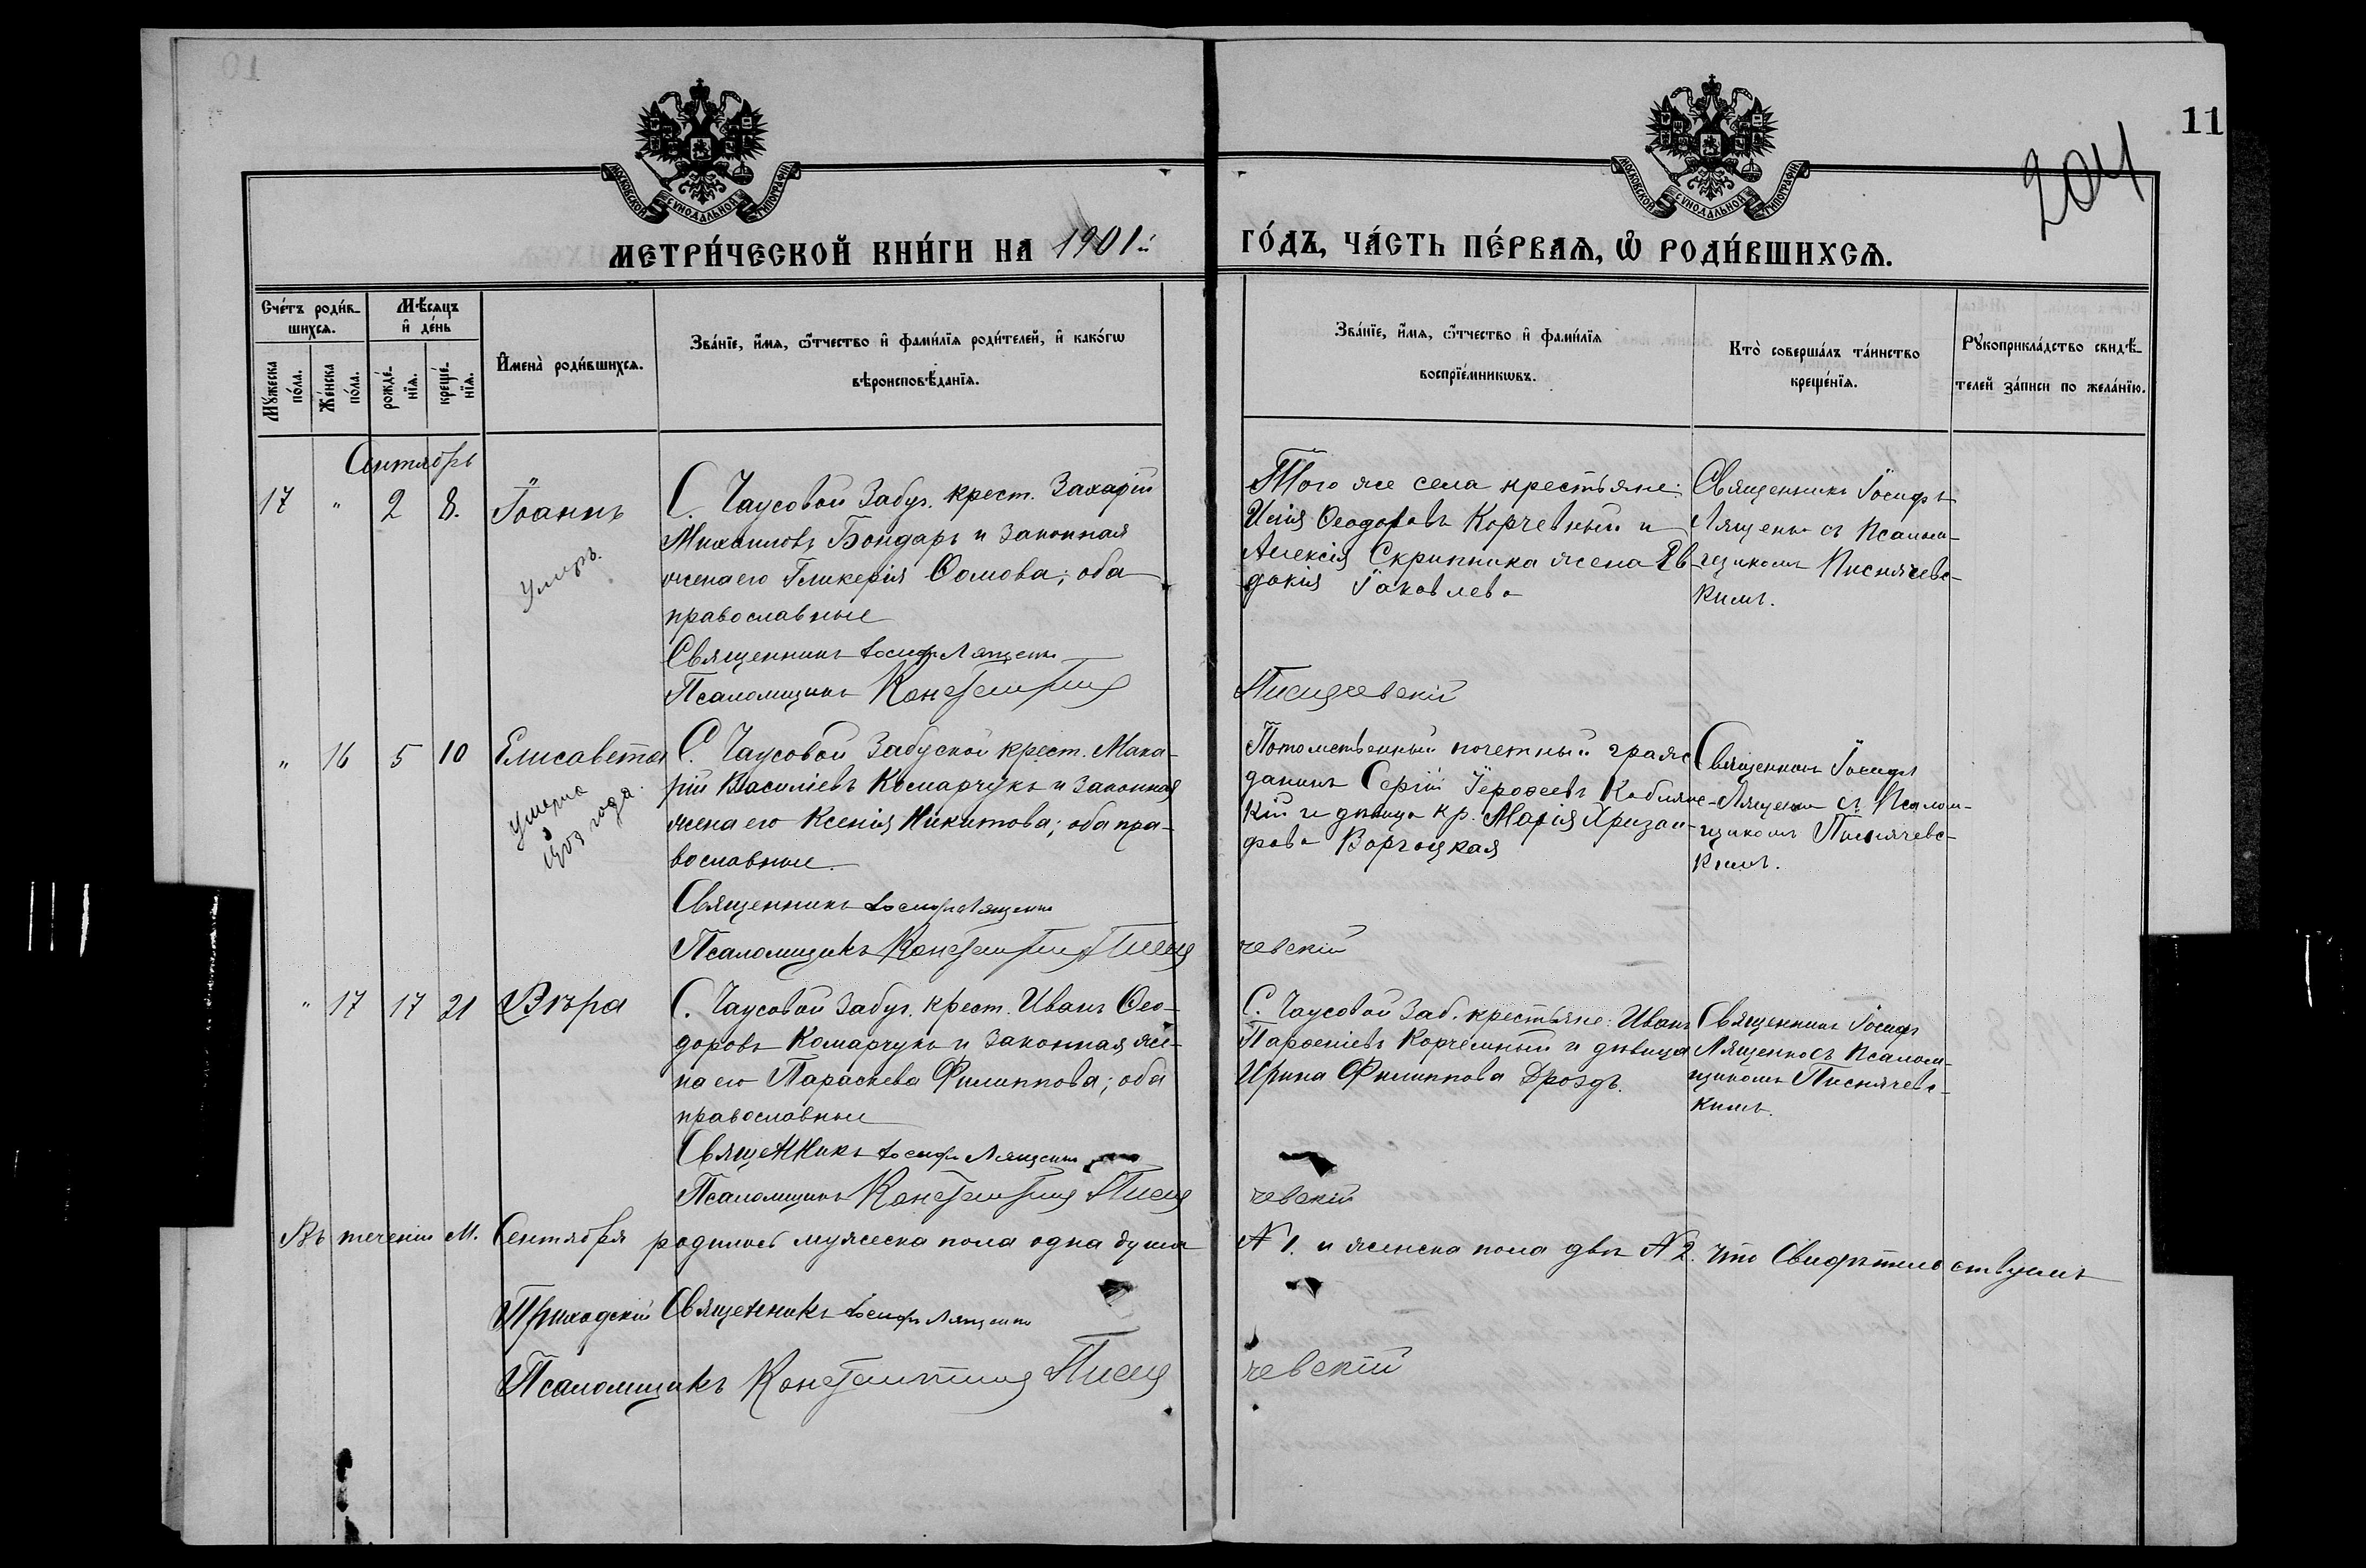 11
204
МОСКОВСКОЙ СѴНОДАЛЬНОЙ ТИПОГРАФІИ
МОСКОВСКОЙ СѴНОДАЛЬНОЙ ТИПОГРАФІИ
МЕТРИ́ЧЕСКОЙ КНИ́ГИ НА 1901й ГО́ДЪ, ЧА́СТЬ ПЕ́РВАѦ, Ѽ РОДИ́ВШИХСѦ.
Сче́тъ роди́в-
шихсѧ.
Мꙋ́жеска по́ла.
Же́нска по́ла.
Мѣ́сѧцъ
и҆ де́нь
рожде́-
нїѧ.
креще́-
нїѧ.
И҆мена̀ роди́вшихсѧ.
Зва́нїе, и҆́мѧ, ѻ҆́тчество и҆ фами́лїѧ роди́телей, и҆ како́гѡ
вѣроисповѣ́данїѧ.
Зва́нїе, и҆́мѧ, ѻ҆́тчество и҆ фами́лїѧ
воспрїе́мникѡвъ.
Кто̀ соверша́лъ та́инство
креще́нїѧ.
Рꙋкоприкла́дство свидѣ́-
телей за́писи по жела́нїю.
Сентябрь
17 " 2 8. Іоаннъ
Умеръ.
С. Чаусовой Забуг. крест. Захарій
Михаиловъ Бондарь и законная
жена его Гликерія Ѳомова; оба
православные
Священникъ Іосифъ Лященко
Псаломщикъ Константинъ Писнячевскій
Того же села крестьяне:
Илія Ѳеодоровъ Корчевный и
Алексія Скрипника жена Ев-
докія Іаковлева
Священникъ Іосифъ
Лященко съ Псалом-
щикомъ Писнячевс-
кимъ.
" 16 5 10 Елисавета
умерла
в
1903 года.
С. Чаусовой Забугской крест. Мака-
рій Василіевъ Комарчукъ и законная
жена его Ксенія Никитова; оба пра-
вославные.
Священникъ Іосифъ Лященко
Псаломщикъ Константинъ Писнячевскій
Потомственный почетный граж-
данинъ Сергій Іероѳеевъ Коблянс-
кій и дѣвица кр. Марія Хризан-
фова
Священникъ Іосифъ
Лященко съ Псалом-
щикомъ Писнячевс-
кимъ.
" 17 17 21 Вѣра
С. Чаусовой Забуг. крест. Иванъ Ѳео-
доровъ Комарчукъ и законная же-
на его Параскева Филиппова; оба
православные
Священникъ Іосифъ Лященко
Псаломщикъ Константинъ Писнячевскій
С. Чаусовой Заб. крестьяне: Иванъ
Парѳеніевъ Корчемный и дѣвица
Ирина Филиппова Дроздъ.
Священникъ Іосифъ
Лященко съ Псалом-
щикомъ Писнячевс-
кимъ.
Въ теченіи м. Сентября родилось мужеска пола одна душа № 1. и женска пола двѣ № 2. что Свидѣтельствуемъ
Приходскій Священникъ Іосифъ Лященко
Псаломщикъ Константинъ Писнячевскій